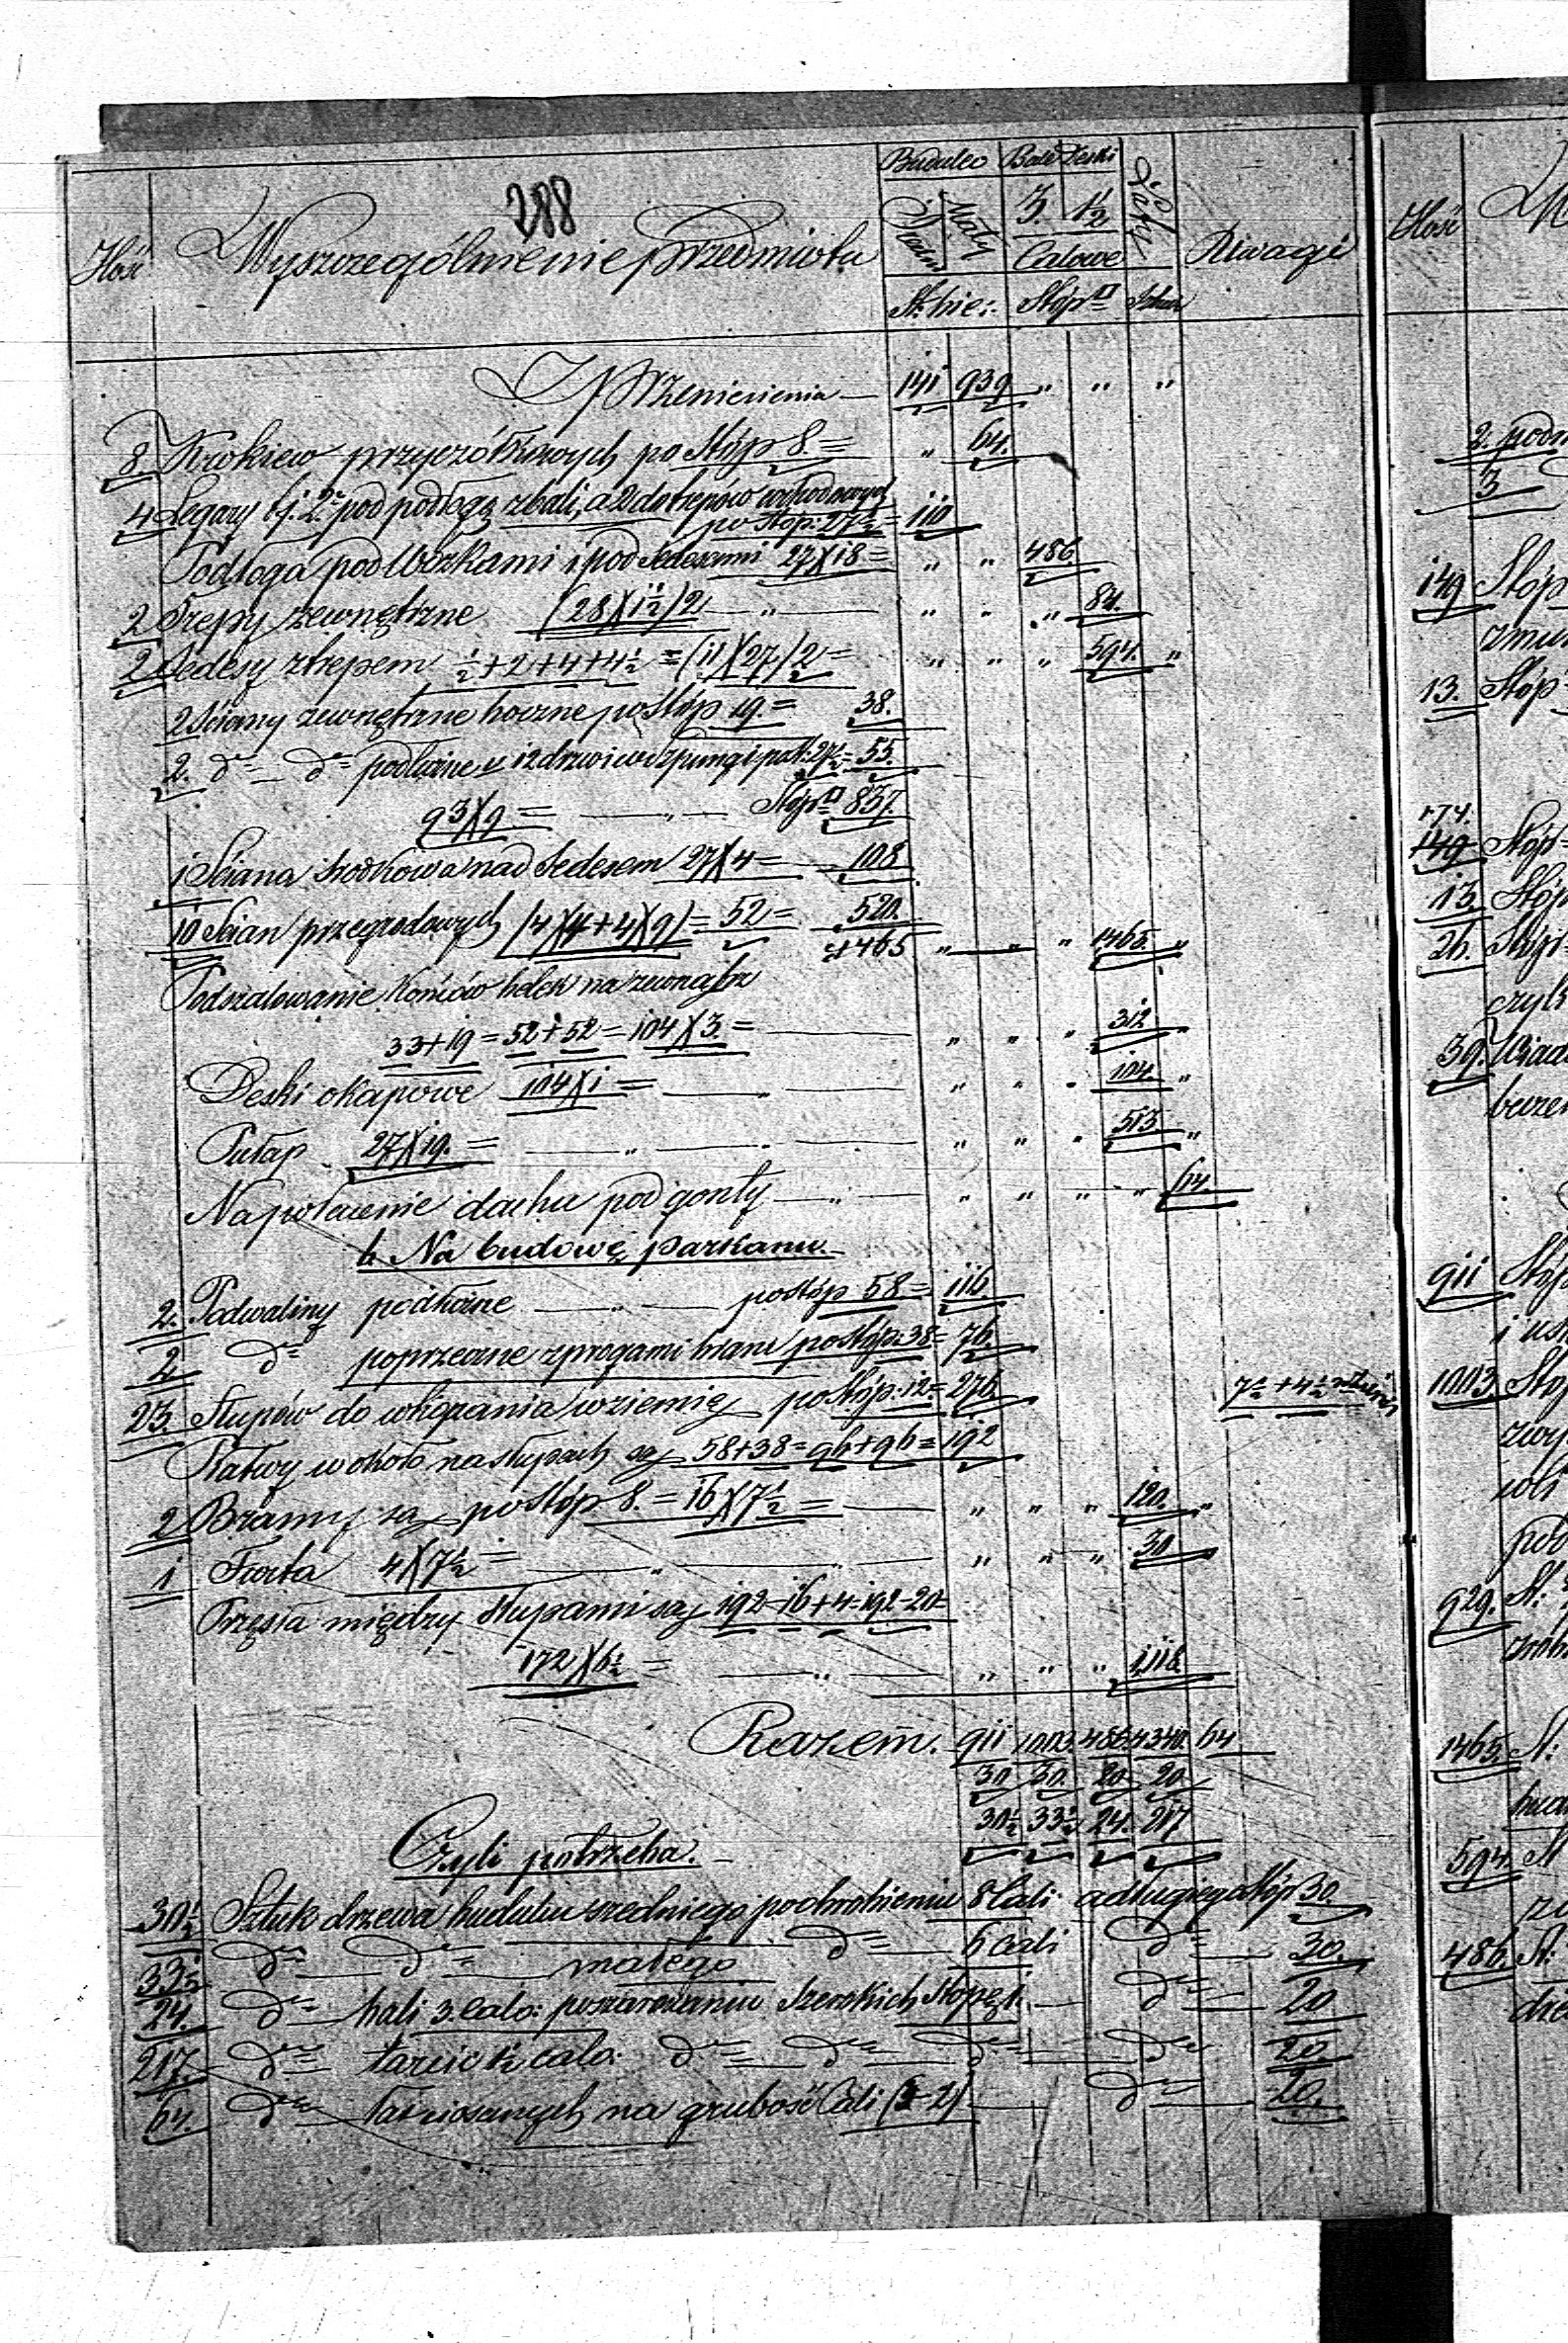 288
Ilość Wyszczególnienie przedmiotu Budulec Bale Deski Łaty Uwagi
Średni Mały 3. 1½
Calowe
St: bie: Stóp □ Sztuk
Z przeniesienia — 141 939 " " "
8. Krokiew przyczółkowych po Stóp 8. = " 64.
4 Legary t.j. 2. pod podłogę z bali, a 2 do trepów
po Stop: 27½ = 110
Podłoga pod i pod Sedesami 27 X 18 = " " 486.
2 Trepy zewnętrzne (28 X 1½) 2 " " " " 84.
2 Sedesy z trepem ½+2+4+4½ = (11 X 27) 2 = " " " 594. "
2 Ściany zewnętrzne boczne po Stóp 19. = 38.
2. dº dº podłużne z drzwi w Szpungi po St: 27½ = 55.
93 X 9 = " Stóp □ 837.
1 Ściana środkowa nad Sedesem 27 X 4 = 108
10 Ścian przegrodowych (4 X 4 + 4 X 9) = 52 = 520.
1465 " " " 1465. "
Podszalowanie końców belek na zewnątrz
33+19 = 52+52 = 104 X 3. = " " " 312
Deski okapowe 104 X 1 = " " " " 104. "
Pułap 27 X 19. = " " " " 513 "
Napołacenie dachu pod gonty " " " " " 64.
b. Na budowę parkanu.
2. Podwaliny podłużne " po stóp 58 = 116.
2. dº poprzeczne z progami bram po stóp: 38 = 76.
23. Słupów do wkopania w ziemię po Stóp: 12 = 276. 7½ + 4½
Płatwy w około na słupach są 58+38 = 96+96 = 192
2 Bramy są po Stóp 8. = 16 X 7½ = " " " 120. "
1 Furta 4 X 7½ = " " " " 30
Przęsła między słupami są 192-16+4=192-20=
172 X 6½ = " " " " 1,118.
Razem. 911 1003. 486. 4340. 64
30 30. 20 20
30½ 33½ 24. 217
Czyli potrzeba.
30½ Sztuk drzewa budulcu średniego po obrobieniu 8 Cali a długiego Stóp 30
33½ dº dº małego dº 6 Cali dº 30.
24. dº bali 3. Calo: szerokich Stopę 1. dº 20
217. dº tarcic 1½ Calo: dº dº dº dº 20.
64. dº Łat na grubość Cali (3-2) dº 20.
Ilość
2.
3
149 Stóp
13. Stóp
174.
149 Stóp
13. Stóp
26. Stóp
czyli
39.
911 Stóp
1003
929. St:
1465. St:
594. St
486. St: